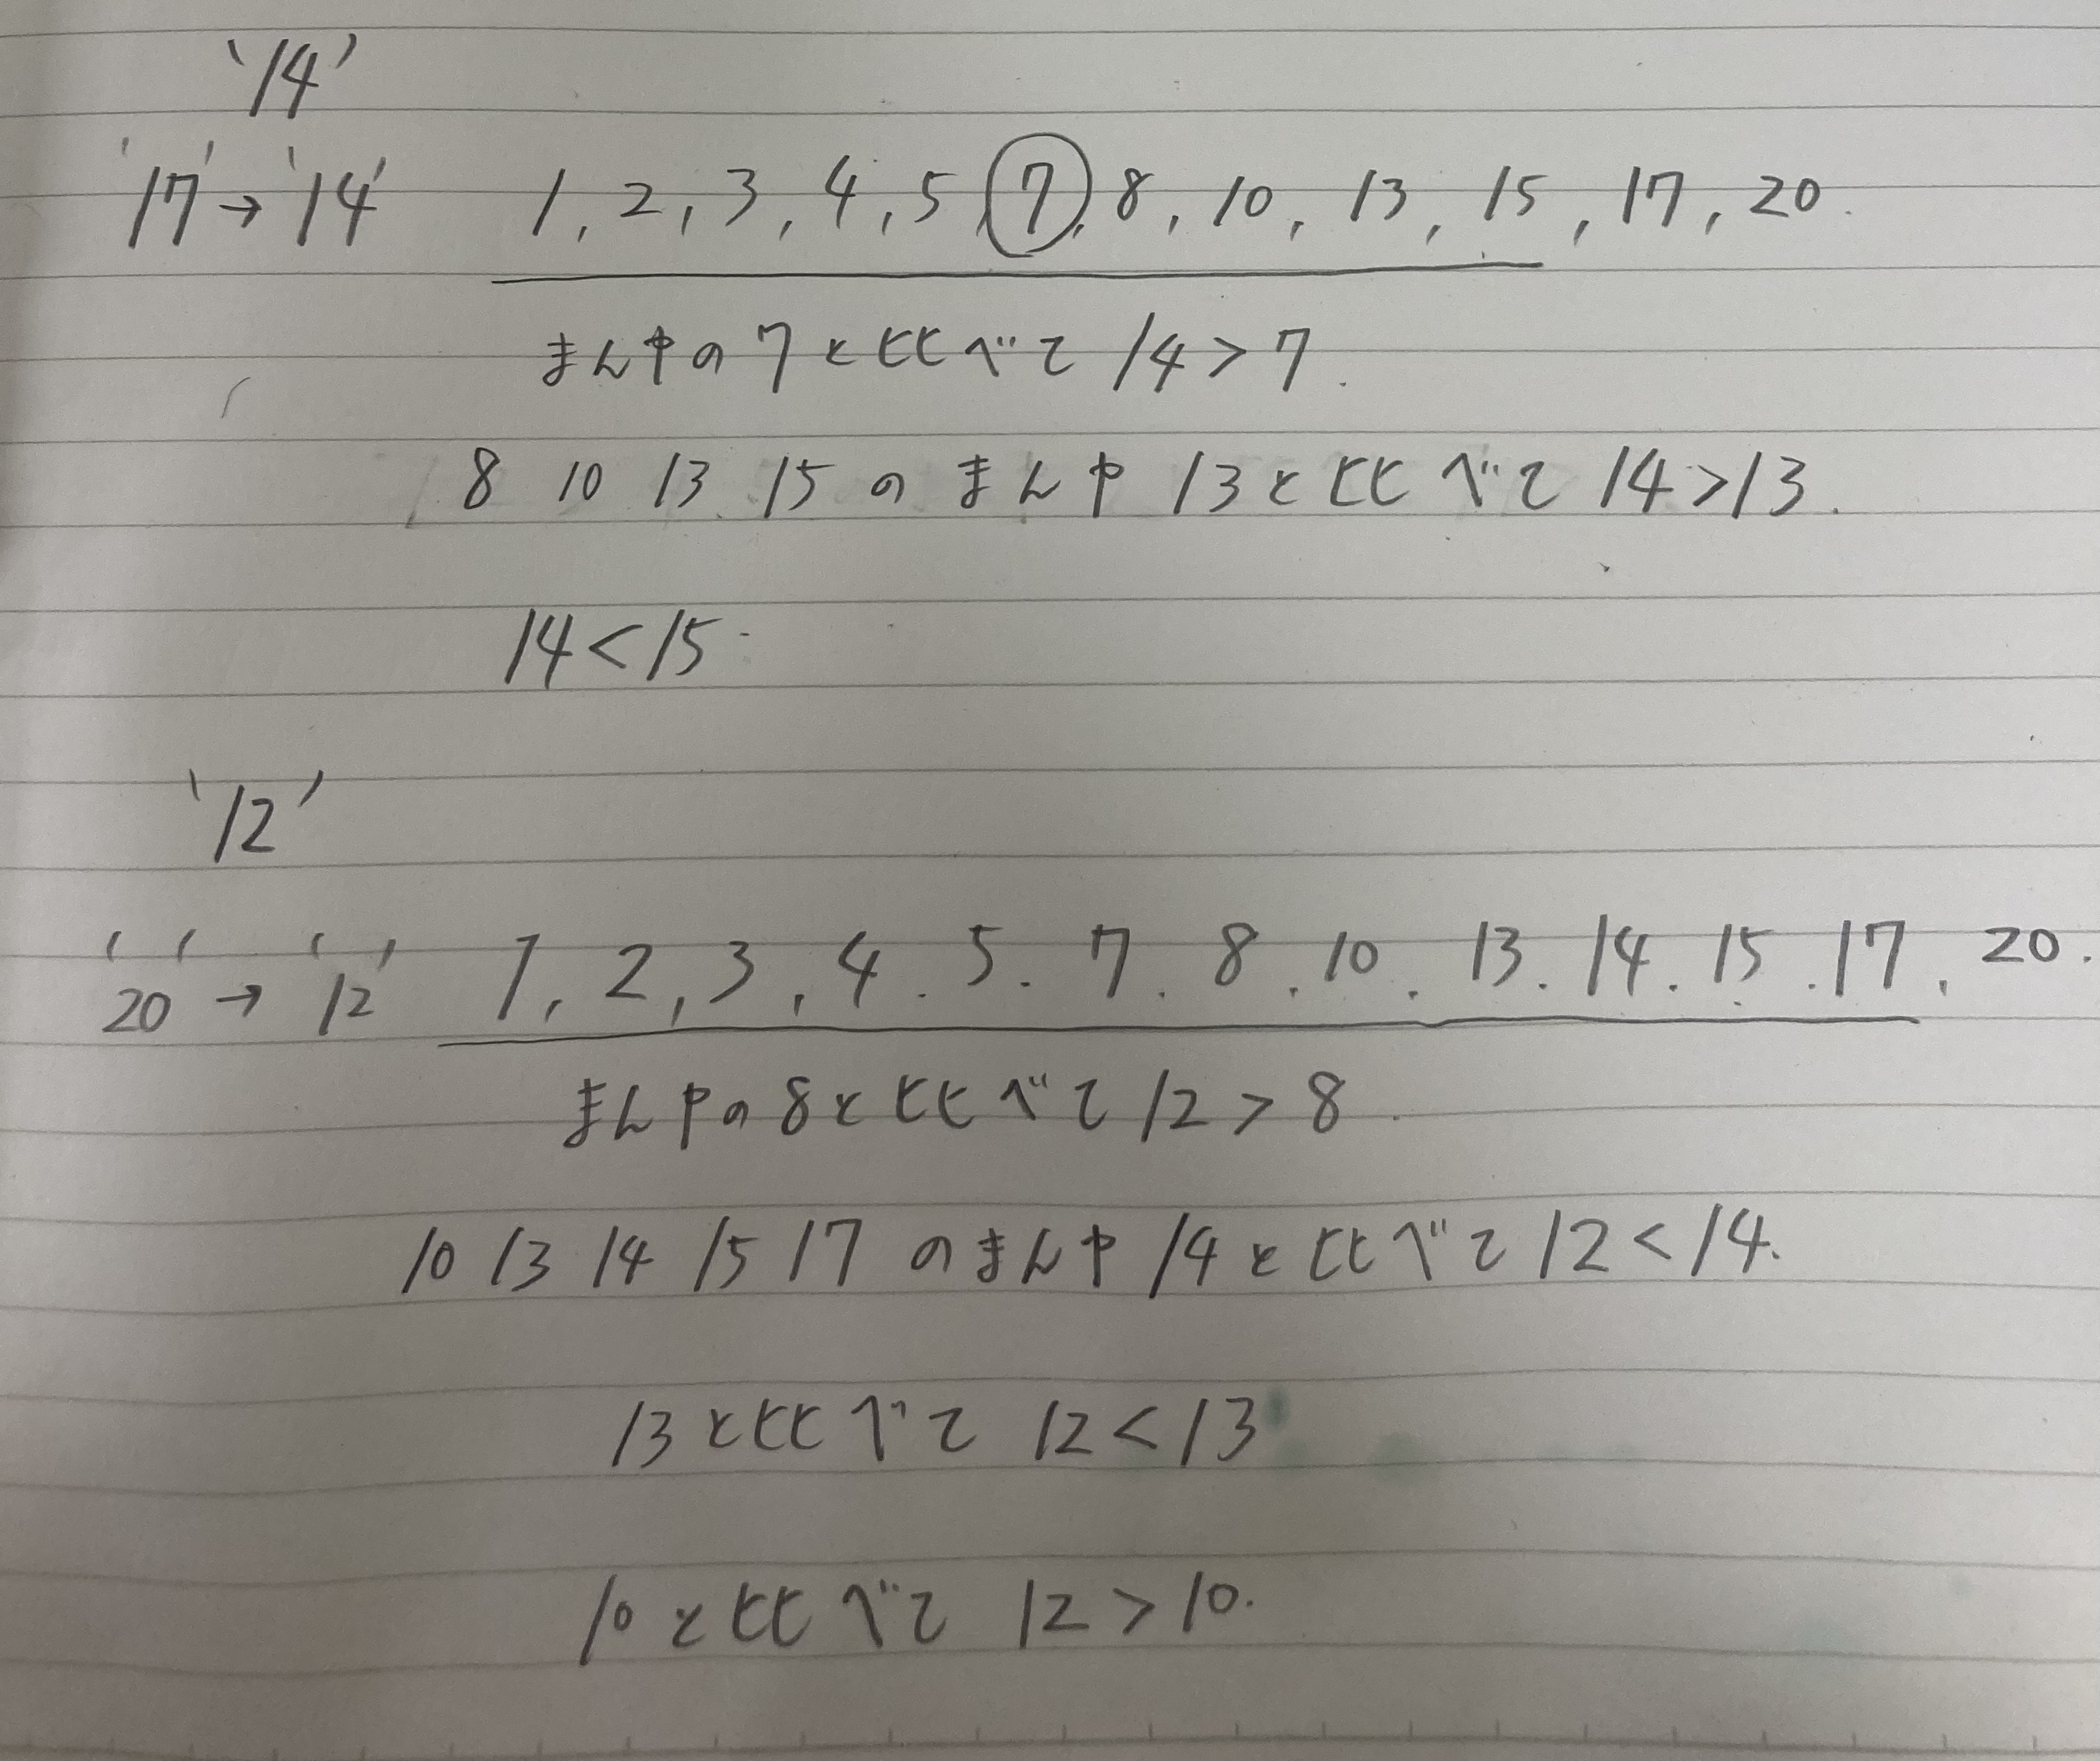 '14'
'17' → '14' 1, 2, 3, 4, 5, 7, 8, 10, 13, 15, 17, 20.
まん中の7と比べて 14 > 7.
8 10 13 15 のまん中 13と比べて 14 > 13.
14 < 15
'12'
'20' → '12' 1, 2, 3, 4. 5. 7. 8. 10. 13. 14. 15. 17, 20.
まん中の8と比べて 12 > 8.
10 13 14 15 17 のまん中 14と比べて 12 < 14.
13と比べて 12 < 13
10と比べて 12 > 10.